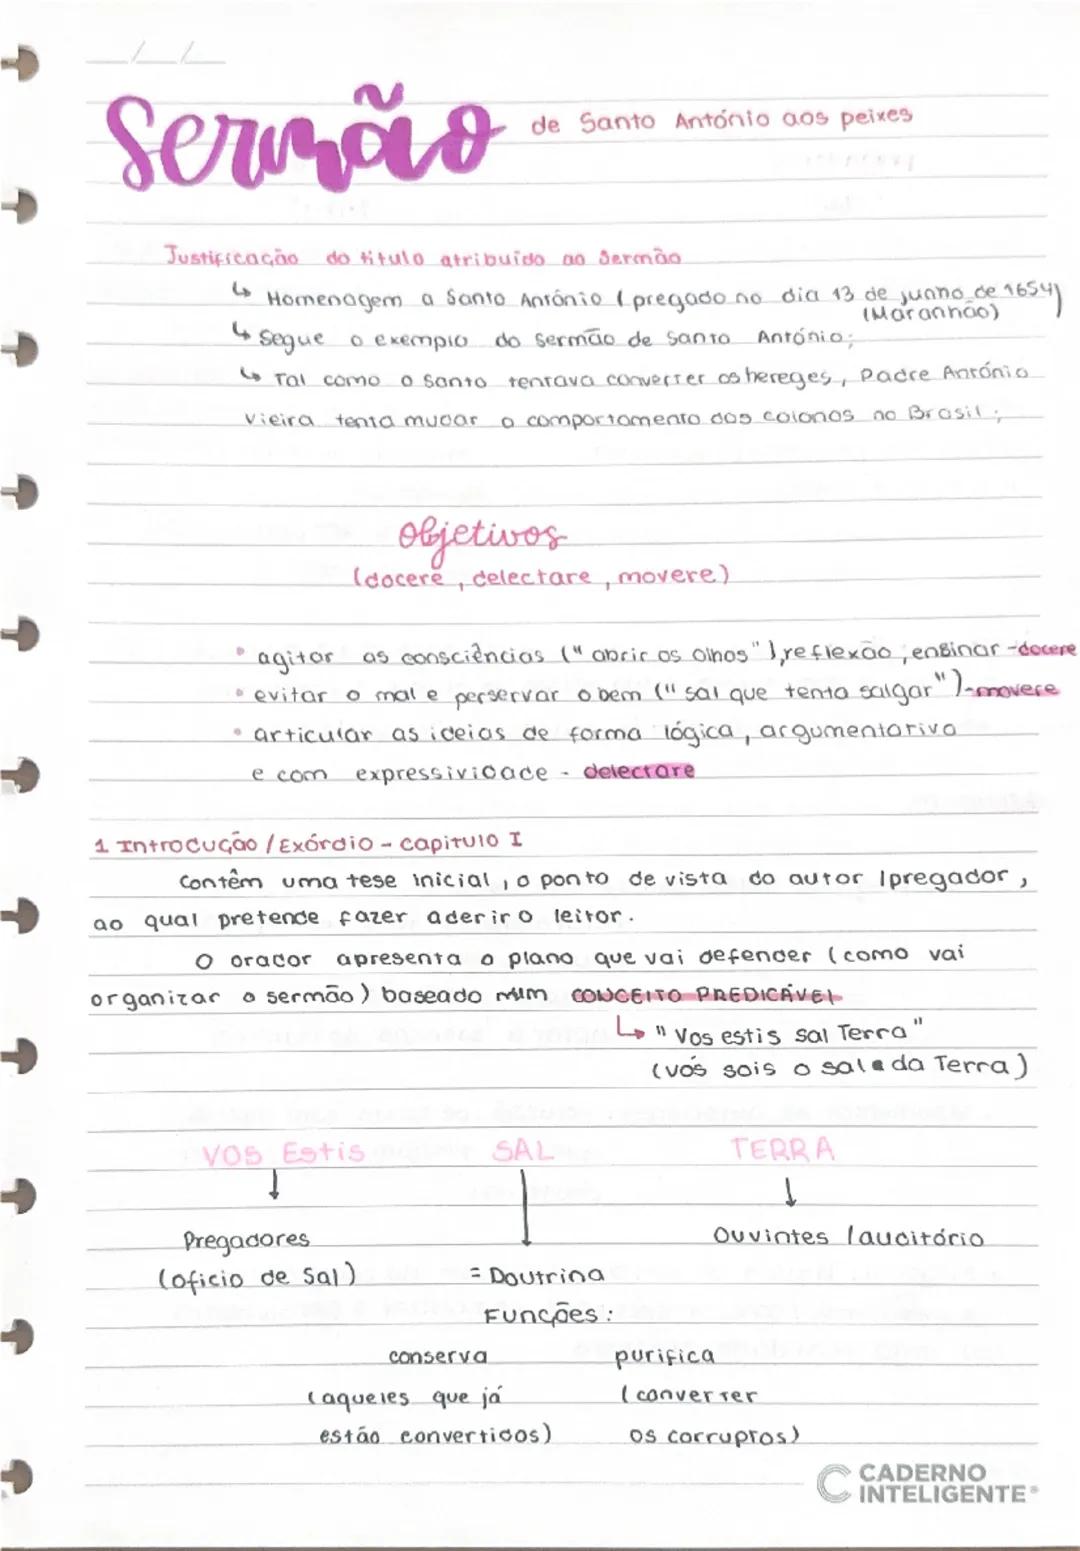 Sermão de Santo António aos peixes
Justificação do titulo atribuído ao Sermão
↳ Homenagem a Santo António (pregado no dia 13 de junho de 1654)
(Maranhão)
↳ Segue o exemplo do Sermão de Santo António;
↳ Tal como o Santo tentava converter os hereges, Padre António
Vieira tenta mudar o comportamento dos colonos no Brasil;
Objetivos
(docere, delectare, movere)
• agitar as consciências ("abrir os olhos"), reflexão, ensinar - docere
• evitar o mal e perservar o bem ("sal que tenta salgar") - movere
• articular as ideias de forma lógica, argumentativa
e com expressividade - delectare
1 Introdução / Exórdio - capitulo I
Contêm uma tese inicial, o ponto de vista do autor /pregador,
ao qual pretende fazer aderir o leitor.
O orador apresenta o plano que vai defender (como vai
organizar o sermão) baseado num CONCEITO PREDICÁVEL
↳ "Vos estis sal Terra"
(vós sois o sal da Terra)
VOS Estis SAL TERRA
↓ ↓ ↓
Pregadores Ouvintes /auditório
(oficio de Sal) = Doutrina
Funções:
conserva purifica
(aqueles que já (converter
estão convertidos) os corruptos)
CADERNO
INTELIGENTE®